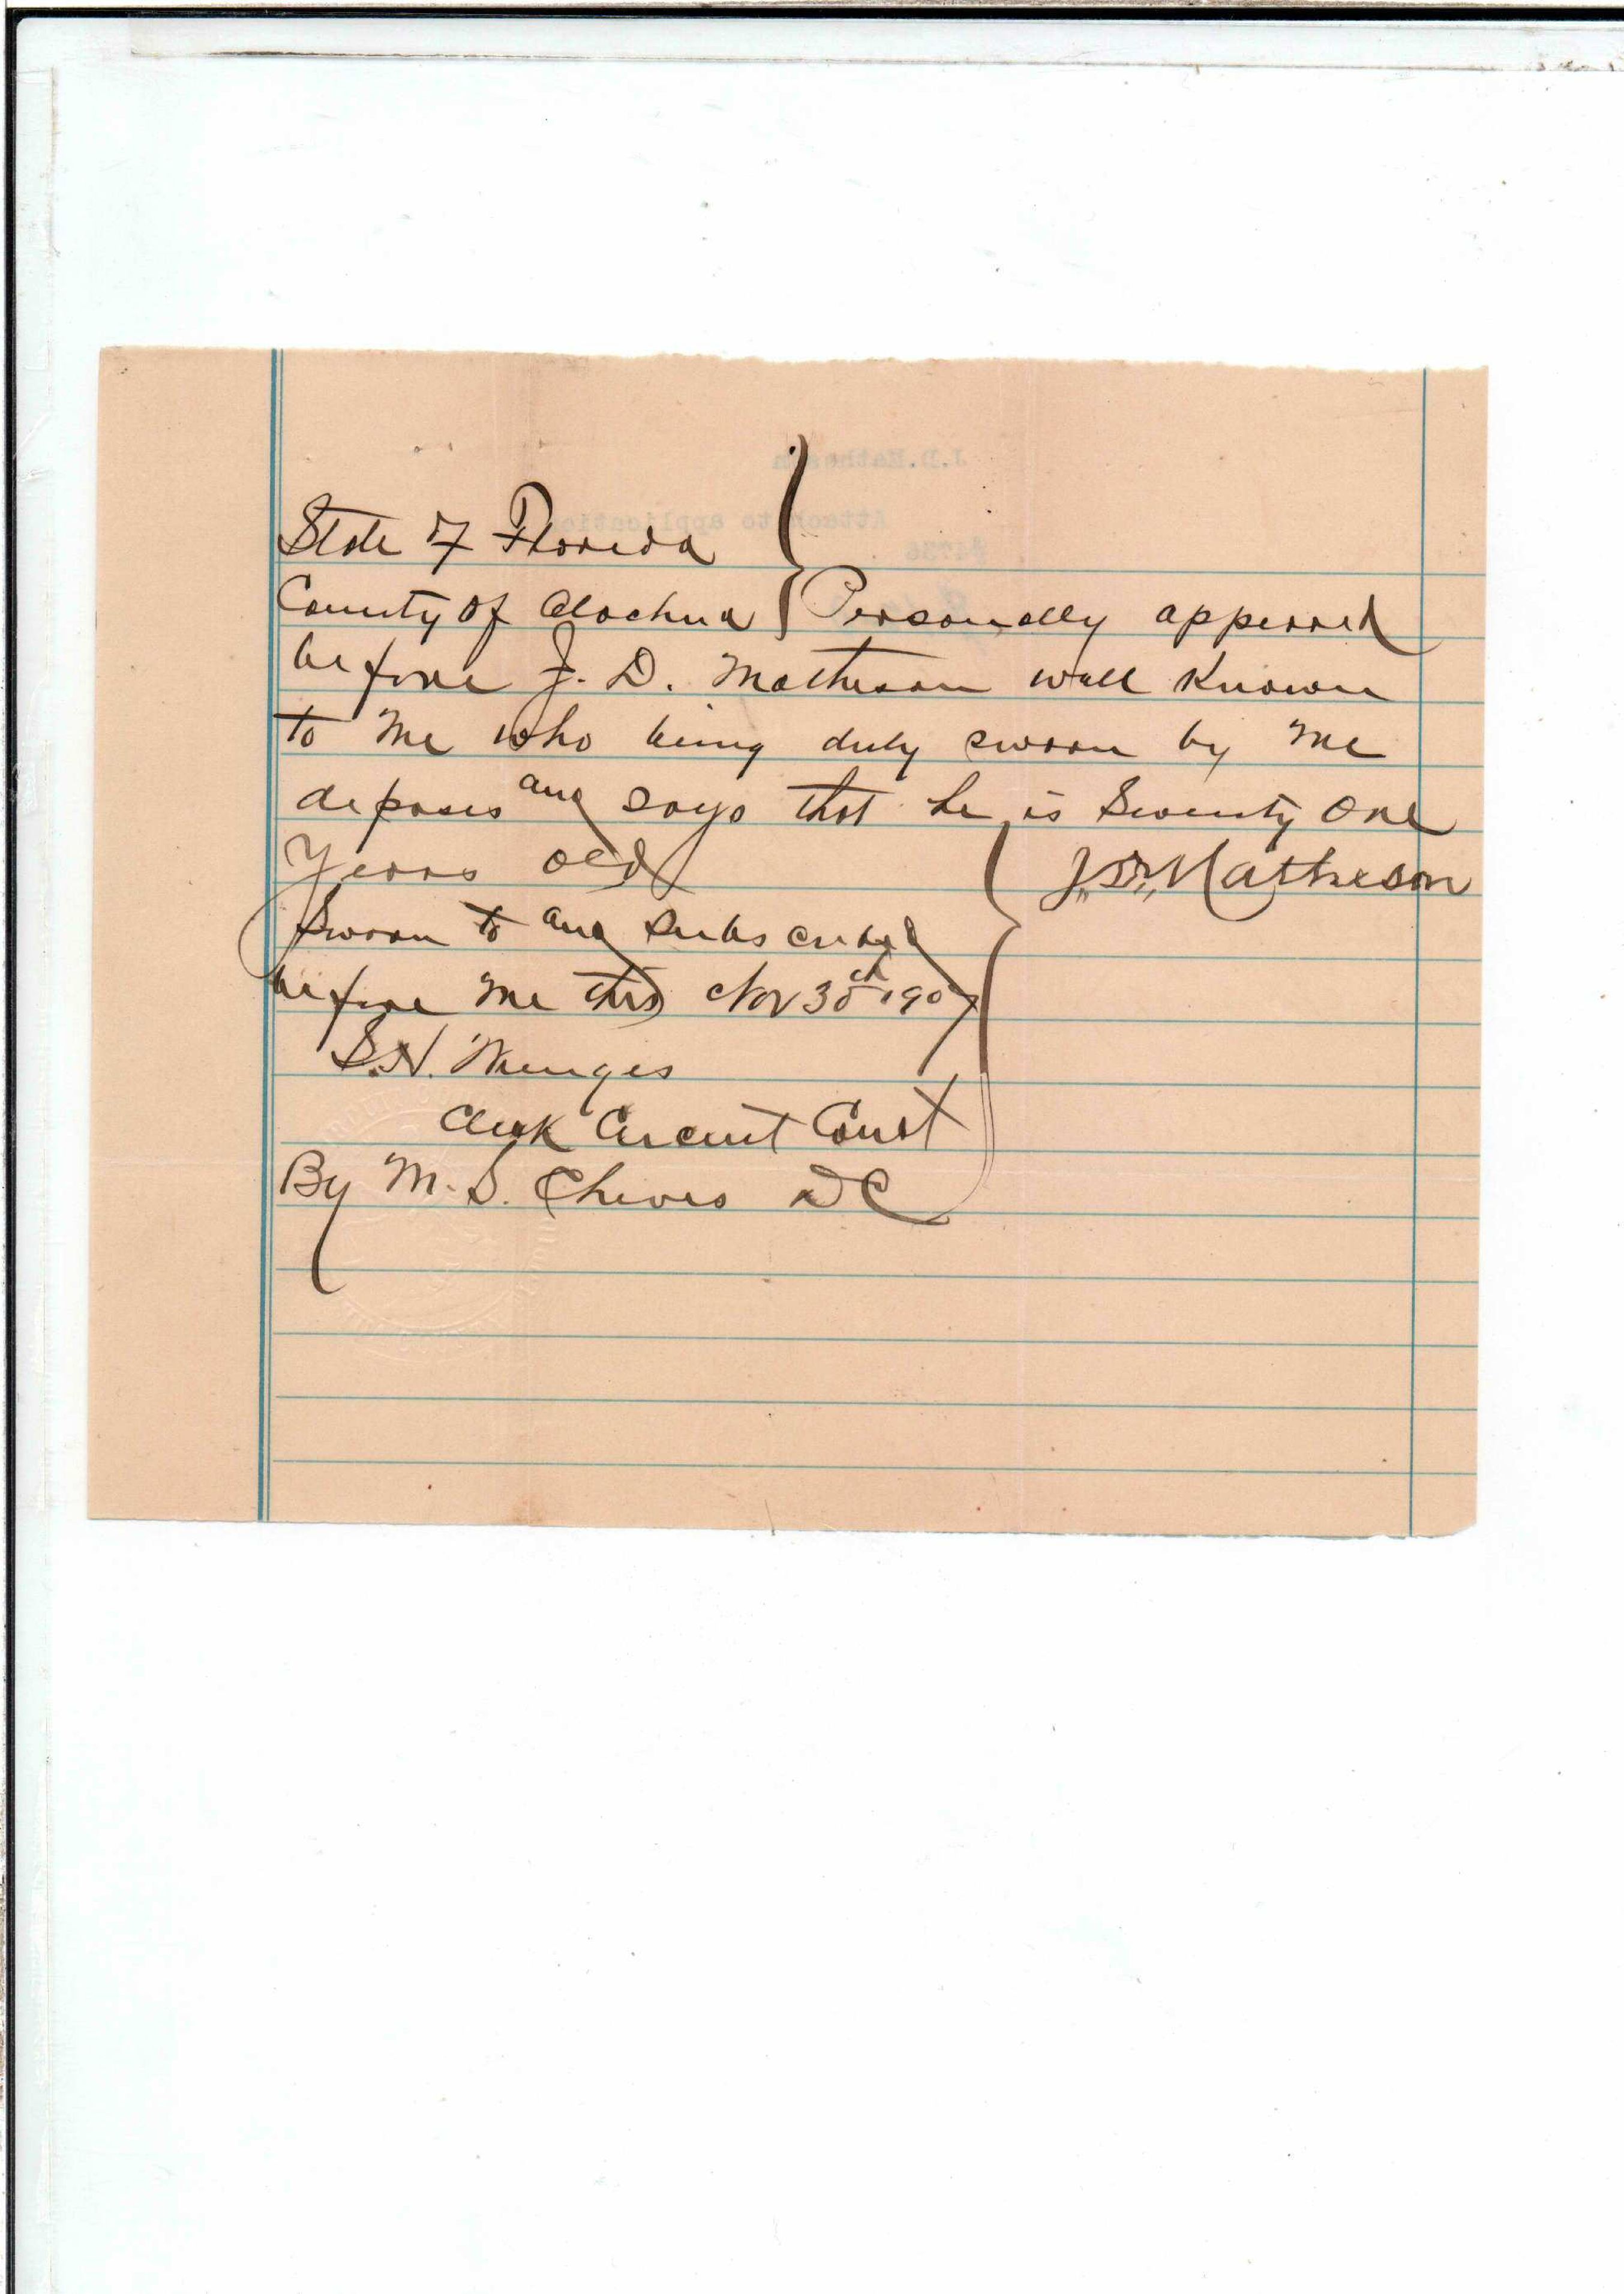 State of Florida
County of Alachua Personally appeared
before J. D. Matheson well Known
to me who being duly sworn by me
deposes and says that he is Seventy One
Years old
J. D. Matheson
Sworn to and subscribed
before me this Nov 30th 1907
S. H. Wienges
Clerk Circuit Court
By M. S. Cheves DC
J.D.Matheson
Attach to application
#4736